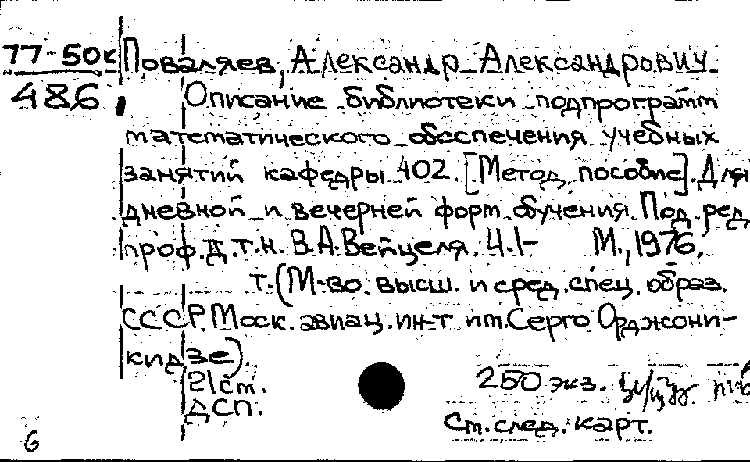 77-50к Поваляев, Александр Александрович
486 Описание библиотеки подпрограмм
математического обеспечения учебных
занятий кафедры 402. [Метод. пособие]. Для
дневной и вечерней форм обучения. Под ред.
проф. д.т.н. В.А. Вейцеля. Ч.1- М., 1976.
т. (М-во высш. и сред. спец. образ.
СССР. Моск. авиац. ин-т им. Серго Орджони-
кидзе).
21 см.
ДСП. 250 экз.
См. след. карт.
6